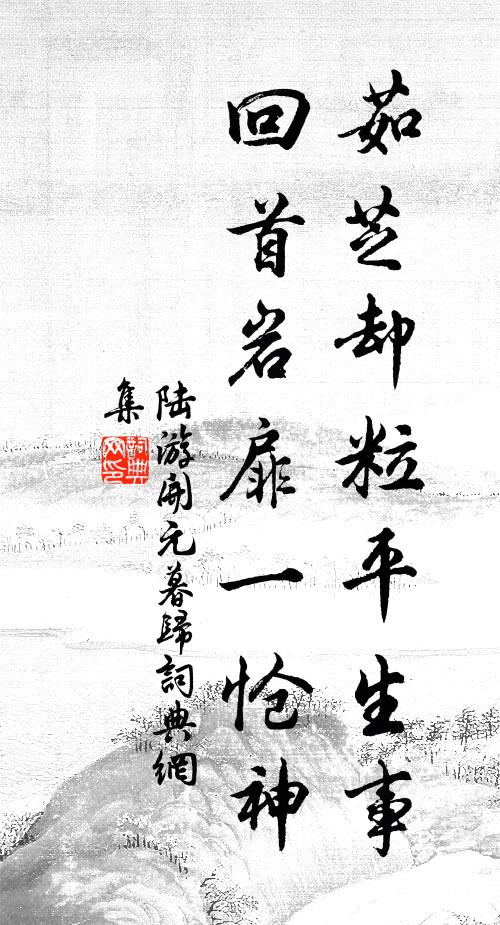 茹芝却粒平生事
回首岩扉一怆神
陆游開元暮歸詞典網
集
詞典网印